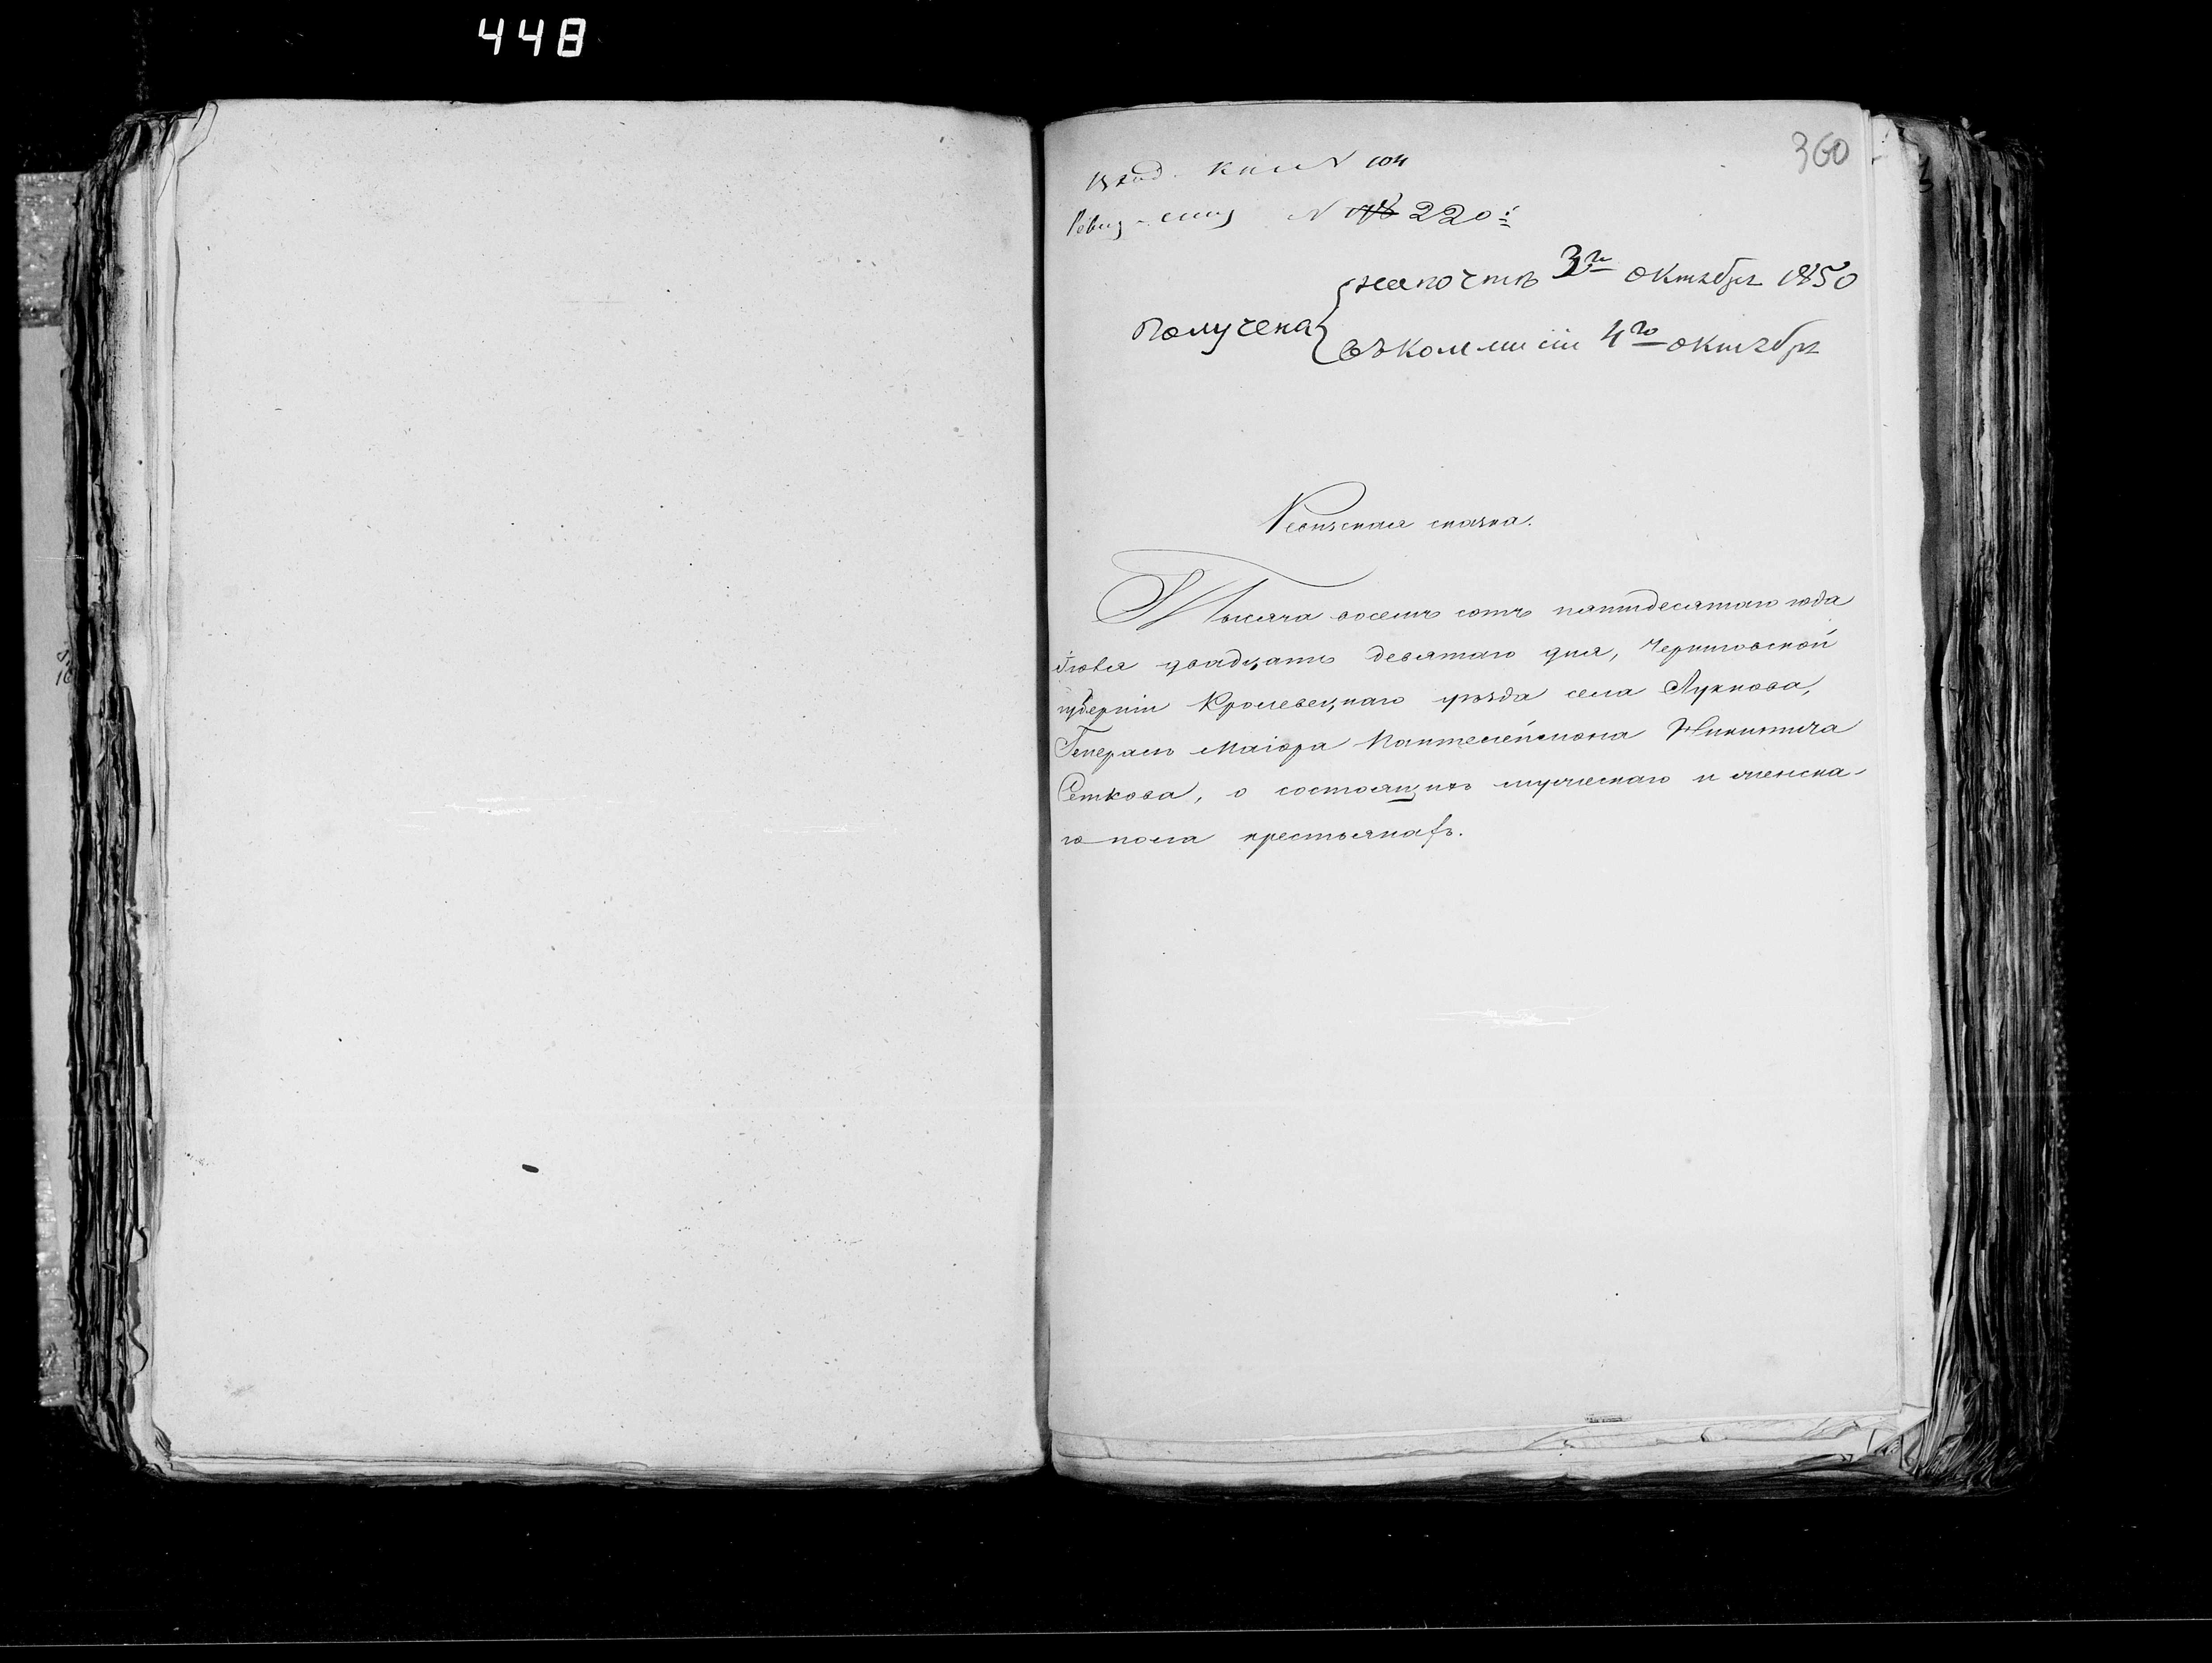 448
360
Вход. кни N 104
Ревиз. спис N 220:
Получена { на почтѣ 3го октября 1850
въ коммисіи 4го октября
Ревизская сказка.
Тысяча восемь сотъ пятидесятаго года
Іюля двадцать девятаго дня, Черниговской
губерніи Кролевецкаго уѣзда села Лукнова,
Генералъ Маіора Пантелеймона Никитича
Сеткова, о состоящихъ мужескаго и женска-
го пола крестьянахъ.